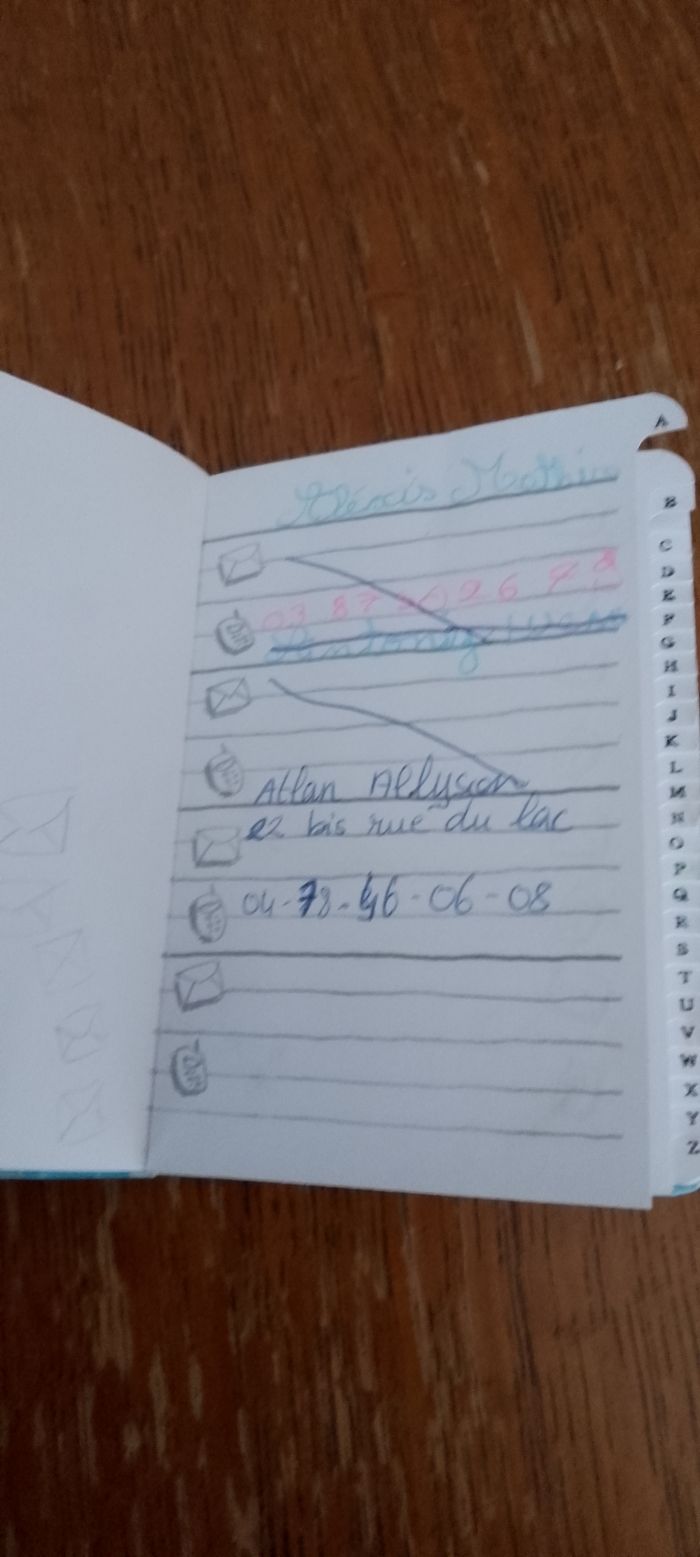 Alexis Mathieu
A
03 87 50 26 48
Antony
Allan Allyson
22 bis rue du lac
04-78-46-06-08
B
C
D
E
F
G
H
I
J
K
L
M
N
O
P
Q
R
S
T
U
V
W
X
Y
Z